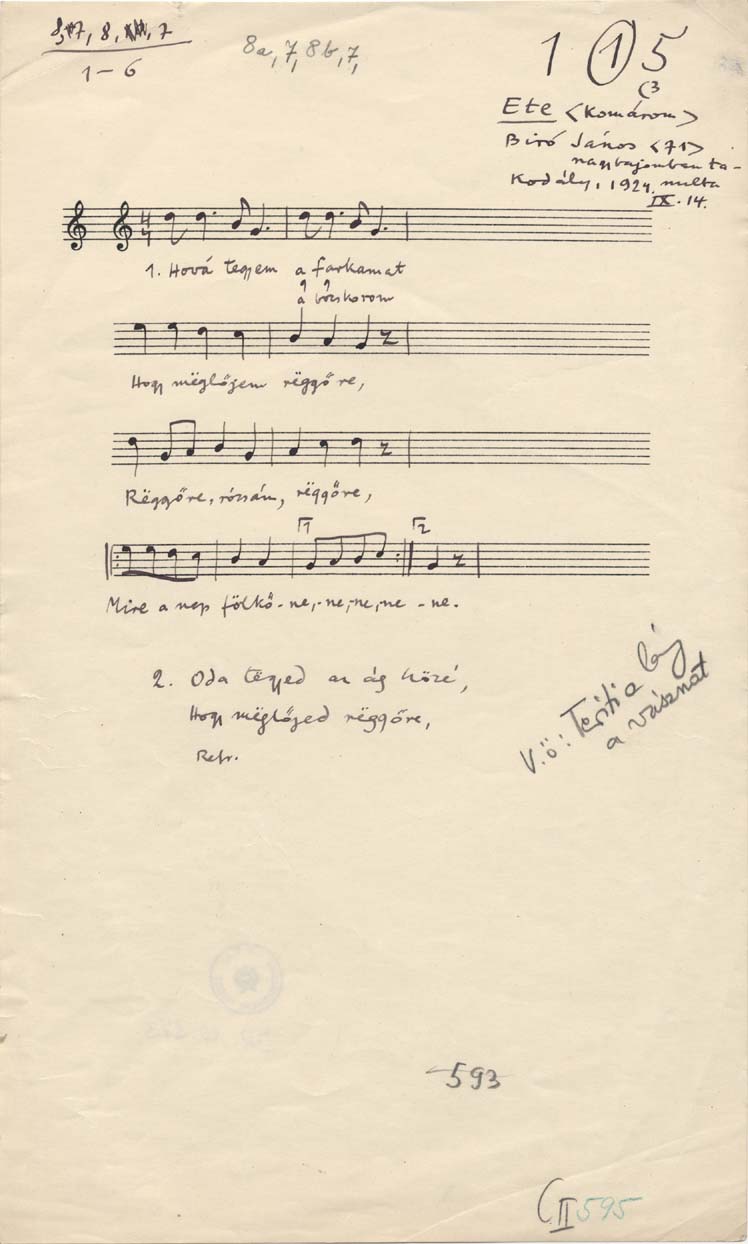 8, 7, 8, 7
1-6
8a, 7, 8b, 7,
1 1 5
(3
Ete <Komárom>
Biró János <71>
nagybajomban ta-
nulta
Kodály, 1924. IX. 14.
1. Hová tegyem a farkamat
a bőcskorom
Hogy mëglőjem rëggőre,
Rëggőre, rózsám, rëggőre,
1 2
Mire a nap fölkő-ne,-ne,-ne,-ne -ne.
2. Oda tëgyed az ág közé,
Hogy mëglőjed rëggőre,
Refr.
V.ö: Teríti a lány
a vásznát
593
C II 595